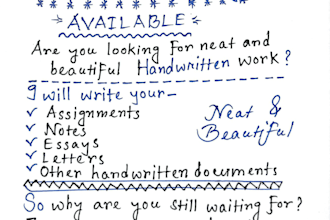 AVAILABLE
Are you looking for neat and
beautiful Handwritten work?
I will write your-
✓ Assignments
✓ Notes
✓ Essays
✓ Letters
✓ Other handwritten documents
Neat &
Beautiful
So why are you still waiting for?